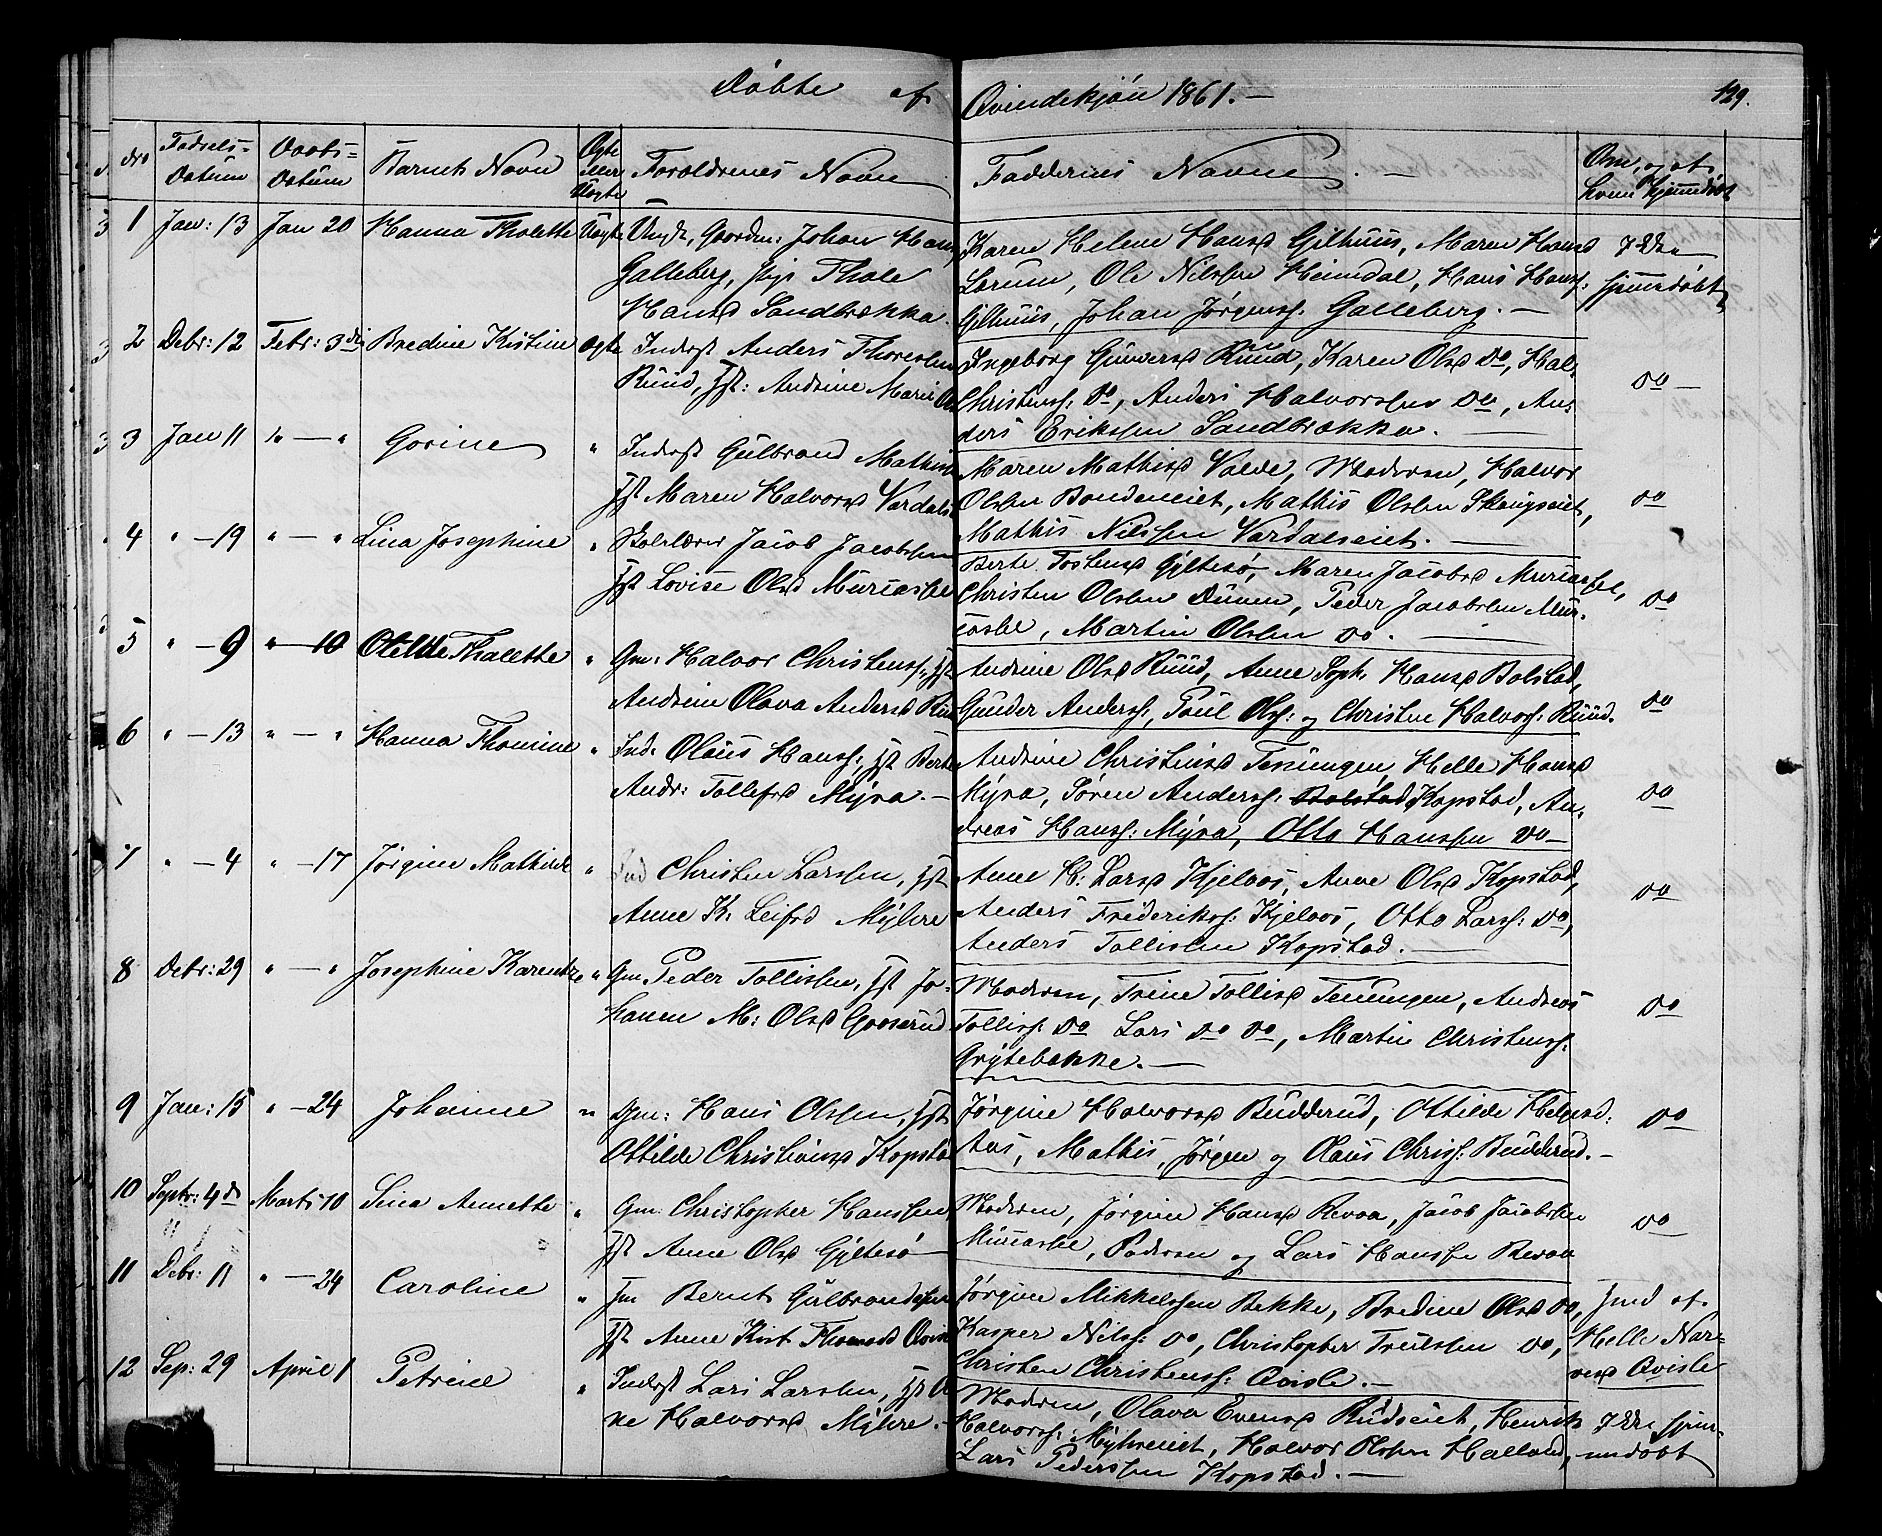 Døbte af Qvindekjøn 1861.— 129.
Nro Fødsels= Datum Daabs= Datum Barnets Navn Ægte eller Uægte Forældrenes Navn Faddernes Navne Om, og af hvem hjemmedøbt
1 Jan: 13 Jan 20 Hanna Thalette Uægte Ungk, Gaardm: Johan Hans Galleberg, pige Thale Hansd Sandbrækka.
Karen Helene Hansd Gilhuus, Maren Hansd
Larum, Ole Nilssen Heimdal, Hans Hanss:
Gilhuus, Johan Jørgenss: Galleberg.—
Ikke hjemmedøbt
2 Debr: 12 Febr: 3die Bredine Kistine Ægte Inderst Anders Thoresen
Ruud, Hst: Andrine Marie
Ingeborg Gunersd Ruud, Karen Olsd Do, Hal.
Christenss: Do, Anders Halvorssen Do, An-
ders Erikssen Sandbrækka.
Do
3 Jan 11 " — " Gorine " Inderst Gulbrand Mathis
Hst Maren Halvorsd Vardals
Maren Mathisd Valde, Moderen, Halvor
Olssen Bondeneiet, Mathis Olssen Skaugseiet,
Mathis Nilssen Vardalseiet.
Do
4 " — 19 " — " Lina Josephine " Skolelærer Jacob Jacobssen
Hst Lovise Olsd Muriaske
Berte Tostensd Gjltesø, Maren Jacobsd
Christen Olssen Duuen, Peder Jacobssen
Martin Olssen Do.
Do
5 " — 9 " — 10 Otelde Thalette " Gm: Halvor Christenss:, Hst
Andrine Olava Andersd
Andrine Olsd Ruud, Anne Soph. Hansd Bolstad,
Gunder Anderss:, Poul Olss: og Christen Halvorss: Ruud.
Do
6 " — 13 " — " Hanna Thomine " Ind. Olaus Hanss:, Hst Berte
Andr: Tollefsd Myra.—
Andrine Christiansd Tenungen, Helle Hansd
Myra, Søren Anderss: Bolstad Kopstad, An-
dreas Hanss: Myra, Otto Hanssen Do—
Do
7 " — 4 " — 17 Jørgine Mathilde " Ind Christen Larssen, Hst
Anne K. Leifsd Myhre
Anne K: Larsd Kjelaas, Anne Olsd Kopstad,
Anders Frederikss: Kjelaas, Otto Larss: Do,
Anders Tollissen Kopstad.—
Do
8 Debr: 29 " — " Josephine Karentze " Gm. Peder Tollissen, Hst Jo-
hanne M: Olsd Gooserud
Moderen, Trine Tollisd Tenungen, Andreas
Tolliss: Do Lars Do Do, Martin Christenss:
Grytebekke.—
Do
9 Jan: 15 " — 24 Johanne " Gm: Hans Olssen, Hst
Ottilde Christiansd Kopsta
Jørgine Halvorsd Budderud, Ottilde Helgesd:
Aas, Mathis, Jørgen og Olaus Chriss: Budderud.—
Do
10 Septr: 4de Marts 10 Lina Annette " Gm: Christopher Hanssen
Hst Anne Olsd Gjltesø
Moderen, Jørgine Hansd Revaa, Jacob Jacobssen
Faderen og Lars Hanssen Revaa
Do
11 Debr: 11 " — 24 Caroline " Gm Bernt Gulbrandssen
Hst Anne Kirst Thomasd Qvisle
Jørgine Mikkelssen Bekke, Bredine Olsd Do,
Kasper Nilss: Do, Christopher Truulssen Do,
Christen Christenss: Qvisle.—
Hjmd af Helle Nar-
vesd Qvisle
12 Sep: 29 April 1 Petrine " Inderst Lars Larssen, Hst
ne Halvorsd Myhre.—
Moderen, Olava Evensd Rudseiet, Henrik
Halvorss: Myhreeiet, Halvor Olssen Halland,
Lars Pederssen Kopstad.—
Ikke hjem-
medøbt